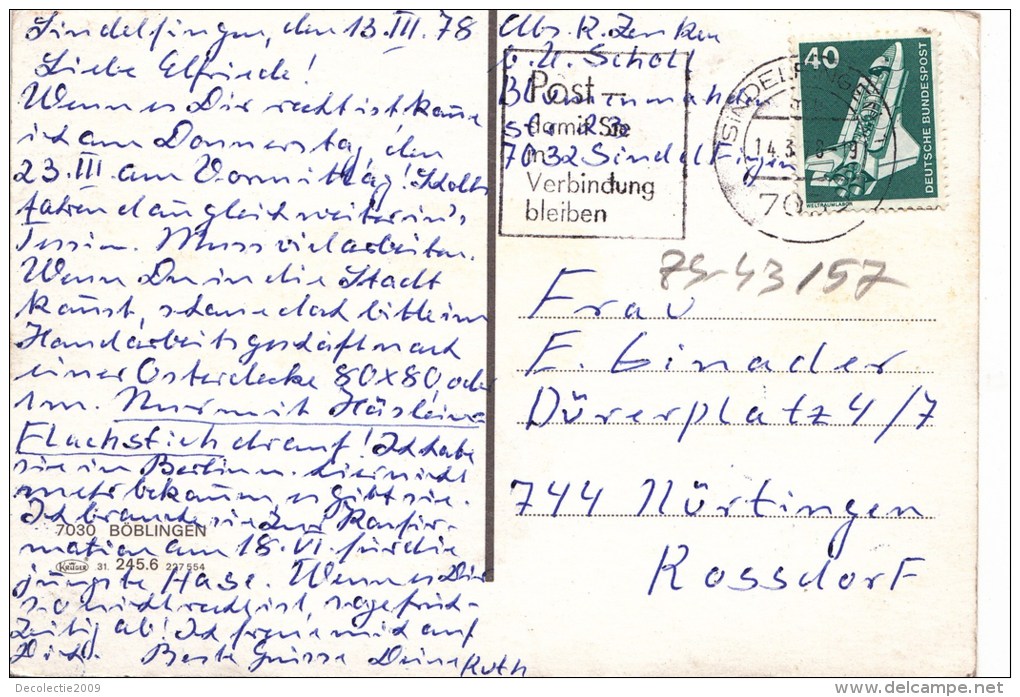 Sindelfingen, den 13. III. 78
Liebe Elfriede!
Wenn es Dir recht ist käme
ich am Donnerstag, den
23. III. am Vormittag! Scholls
fahren dann gleich weiter in's
Tessin. Muss viel arbeiten.
Wenn Du in die Stadt
kommst, schaue doch bitte im
Handarbeitsgeschäft nach
einer Osterdecke 80x80 oder
1 m. Nur mit Häslein-
Flachstich drauf! Ich habe
sie in Berlin u. hier nicht
mehr bekommen, es gibt sie.
Ich brauche sie zur Konfir-
mation am 18. VI. für die
jüngste Hase. Wenn es Dir
so nicht recht ist, sage früh-
zeitig ab! Ich freue mich auf
Dich. Beste Grüsse Deine Ruth
7030 BÖBLINGEN
Krüger 31. 245.6 227 554
Abs. R. Zenken
b. U. Scholl
Str. 23
7032 Sindelfingen
Post –
damit Sie
in
Verbindung
bleiben
SINDELFINGEN
14.3.
70
40
DEUTSCHE BUNDESPOST
WELTRAUMLABOR
75-43/57
Frau
E. Einader
Dürerplatz 4/7
744 Nürtingen
Rossdorf
Decolectie2009
www.delcampe.net